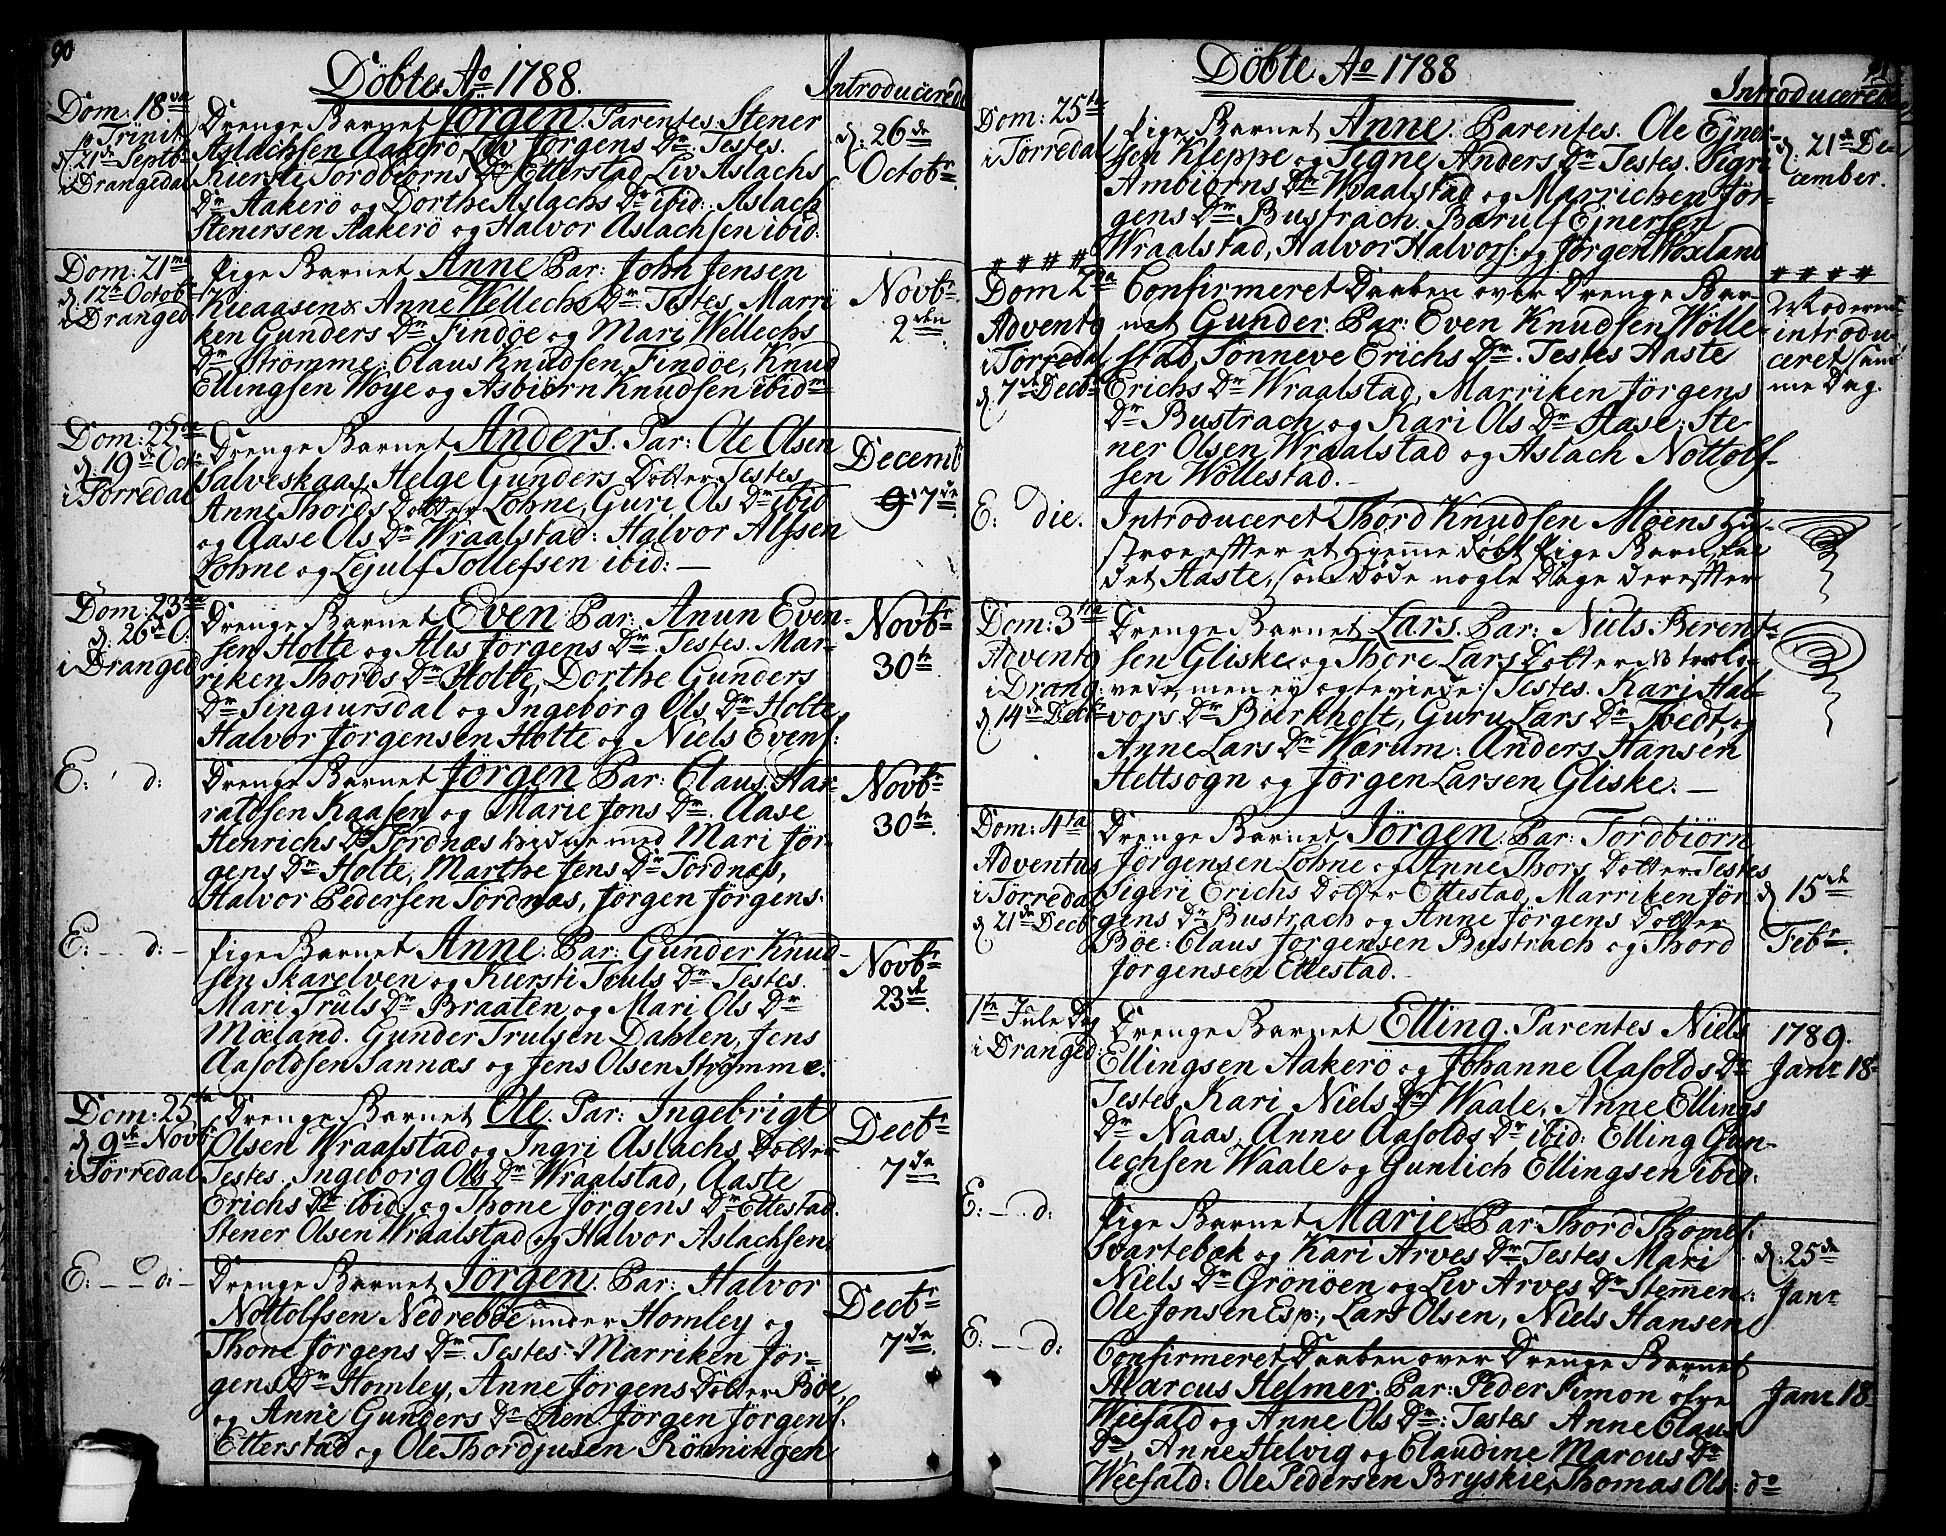 90
Döbte Ao 1788.
Introducerede
Dom: 18de
p. Trinit.
d. 21de Septbr
i Drangedal
Drenge Barnet Jörgen. Parentes. Stener
Aslachsen Aakerö, Liv Jörgens Dr. Testes.
Kiersti Tordbiörns Dr Etterstad, Liv Aslachs
Dr Aakerö og Dorthe Aslachs Dr ibid: Aslach
Stenersen Aakerö og Halvor Aslachsen ibid:
d. 26de
Octobr.
Dom: 21me
d. 12te Octobr
i Dranged
Pige Barnet Anne Par: John Jensen
Anne Wellechs Dr. Testes. Marri
ken Gunders Dr Findöe og Mari Wellechs
Dr Strömme: Claus Knudsen Findöe, Knud
Ellingsen Woye og Asbiörn Knudsen ibidm
Novbr
2den
Dom: 22de
d. 19de Octr
i Törredal
Drenge Barnet Anders. Par: Ole Olsen
Salveskaas, Helge Gunders Dotter Testes
Anne Thords Dotter Lohne, Guri Ols Dr ibid
og Aase Ols Dr Wraalstad: Halvor Alfsen
Lohne og Lejulf Tollefsen ibid: —
Decemb
7de
Dom: 23de
d. 26de O.
i Dranged
Drenge Barnet Even Par: Anun Even-
sen Holte og Alis Jörgens Dr. Testes. Mar-
riken Thords Dr Holte, Dorthe Gunders
Dr Singiursdal og Ingeborg Ols Dr Holte
Halvor Jörgensen Holte og Niels Evens:
Novbr
30te
E: d:
Drenge Barnet Jörgen Par: Claus Har-
raldsen Kaasen og Marie Jons Dr. Aase
Henrichs Dr Tordnæs hidne med Mari Jör-
gens Dr Holte, Marthe Jens Dr Tordnæs,
Halvor Pedersen Tordnæs, Jörgen Jörgens:
Novbr
30te
E: — d: —
Pige Barnet Anne. Par: Gunder Knud-
sen Skarelven og Kiersti Truls Dr Testes.
Mari Truls Dr Braaten og Mari Ols Dr
Mæland. Gunder Trulsen Dahlen, Jens
Aasoldsen Sannæs og Jens Olsen Strömme:
Novbr
23de
Dom: 25te
d. 9de Novbr
i Törredal
Drenge Barnet Ole. Par: Ingebrigt
Olsen Wraalstad og Ingri Aslachs Dotter
Testes. Ingeborg Ols Dr Wraalstad, Aaste
Erichs Dr ibid: og Thone Jörgens Dr Ettestad.
Stener Olsen Wraalstad og Halvor Aslachsen.
Decbr
7de
E: — d: —
Drenge Barnet Jörgen. Par: Halvor
Nottolfsen Nedreböe under Homley og
Thone Jörgens Dr Testes: Marriken Jör-
gens Dr Homley, Anne Jörgens Dotter Böe,
og Anne Gunders Dr Lien. Jörgen Jörgens:
Etterstad og Ole Thordjusen Rönningen
Decbr
7de
Döbte Ao 1788
Introducerede
Dom: 25te
i Törredal
Pige Barnet Anne. Parentes. Ole Ejner-
sen Kleppe og Signe Anders Dr Testes. Sigri
Ambiörns Dr Wraalstad og Marrichen Jör-
gens Dr Bustrach. Bærulf Ejnersen
Wraalstad, Halvor Halvors: og Jörgen Woxland
d. 21de De
cember.
# # # #
# # # #
Dom 2da
Advent9
i Törredal
d. 7de Decbr
Confirmeret Daaben over Drenge Bar-
net Gunder. Par: Even Knudsen Wölle-
stad, Sønneve Erichs Dr. Testes Aaste
Erichs Dr Wraalstad, Marriken Jörgens
Dr Bustrach og Kari Ols Dr Aase: Ste-
ner Olsen Wraalstad og Aslach Nottolf-
sen Wöllestad. —
Moderen
introdu-
ceret sam
me Dag.
E: die.
Introduceret Thord Knudsen Moens Hu-
stroe effter et Hjemme döbt Pige Barn,
det Aaste, som döde nogle Dage dereffter
Dom: 3tia
Advent9
i Drang:
d. 14de Decbr
Drenge Barnet Lars. Par: Niels Berent-
sen Gliske og Thore Lars Dotter NB trolo-
vede, men ey ægteviede: Testes. Kari Hal-
vors Dr Bierkholt, Guru Lars Dr Tvedt, og
Anne Lars Dr Wærum: Anders Hansen
Heltsogn og Jörgen Larsen Gliske: —
Dom: 4ta
Adventus
i Törredal
d. 21de Decb
Drenge Barnet Jörgen. Par: Tordbiörn
Jörgensen Lohne og Anne Thors Dotter Testes
Sigeri Erichs Dotter Ettestad, Marriken Jör
gens Dr Bustrach og Anne Jörgens Dotter
Böe: Claus Jörgensen Bustrach og Thord
Jörgensen Ettestad.
d 15de
Febr.
1te Jule Dag
i Dranged:
Drenge Barnet Elling. Parentes Niels
Ellingsen Aakerö og Johanne Aasolds Dr
Testes, Kari Niels Dr Waale, Anne Ellings
Dr Naas, Anne Aasolds Dr ibid: Elling Gun-
lechsen Waale og Gunlich Ellingsen ibid:
1789.
Janr 18.
E: — d:
Pige Barnet Marie Par: Thord Thomes:
Svartebæk og Kari Arves Dr Testes Mari
Niels Dr Grönöen og Liv Arves Dr Stemmen:
Ole Jonsen Esp:, Lars Olsen, Niels Hansen
d: 25de
Janr
E: — d:
Confirmeret Daaben over Drenge Barnet
Marcus Helmer. Par: Peder Simon
Weefald og Anne Ols Dr: Testes Anne Claus
Dr, Anne Helvig og Claudine Marcus Dr
Weefald: Ole Pedersen Bryskie, Thomas Ols: do
Janr 18